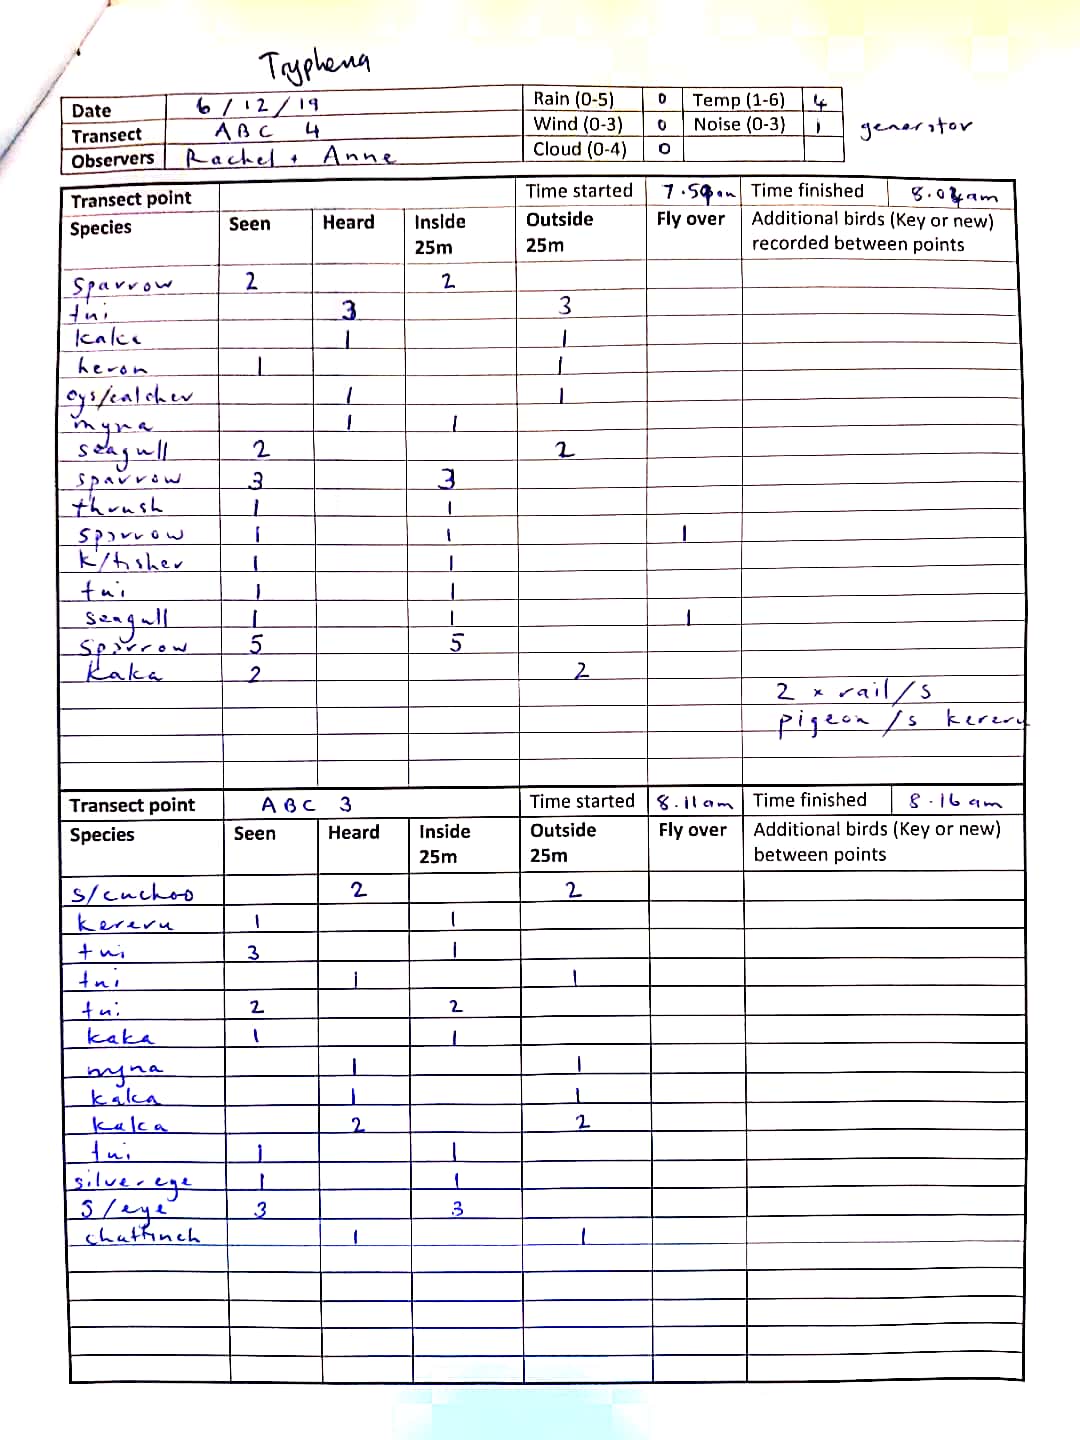 Tryphena
Date 6/12/19 Rain (0-5) 0 Temp (1-6) 4
Transect ABC 4 Wind (0-3) 0 Noise (0-3) 1 generator
Observers Rachel + Anne Cloud (0-4) 0
Transect point Time started Time finished
Species Seen Heard Inside 25m Outside 25m Fly over Additional birds (Key or new) recorded between points
Sparrow 2 2
tui 3 3
kaka 1 1
heron 1 1
oys/catcher 1 1
myna 1 1
seagull 2 2
sparrow 3 3
thrush 1 1
sparrow 1 1 1
k/fisher 1 1
tui 1 1
seagull 1 1 1
Sparrow 5 5
Kaka 2 2
2 x rail/s
pigeon/s kereru
Transect point ABC 3 Time started 8.11am Time finished 8.16am
Species Seen Heard Inside 25m Outside 25m Fly over Additional birds (Key or new) between points
s/cuckoo 2 2
kereru 1 1
tui 3 1
tui 1 1
tui 2 2
kaka 1 1
myna 1 1
kaka 1 1
kaka 2 2
tui 1 1
silvereye 1 1
S/eye 3 3
chaffinch 1 1